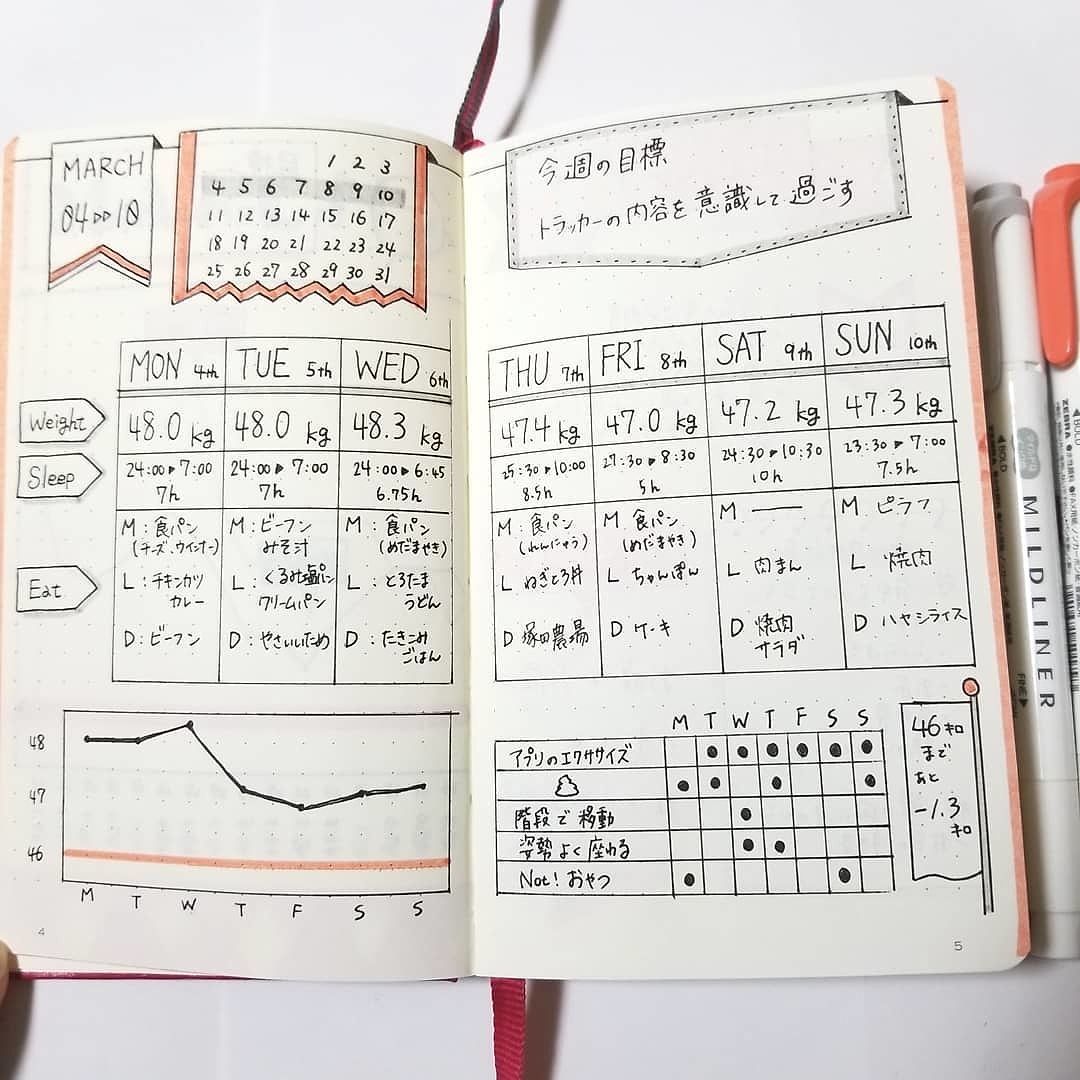 MARCH
04▷▷10
1 2 3
4 5 6 7 8 9 10
11 12 13 14 15 16 17
18 19 20 21 22 23 24
25 26 27 28 29 30 31
今週の目標
トラッカーの内容を意識して過ごす
MON 4th TUE 5th WED 6th
Weight
48.0 kg 48.0 kg 48.3 kg
Sleep
24:00▸7:00 24:00▸7:00 24:00▸6:45
7h 7h 6.75h
Eat
M:食パン
(チーズ、ウインナー)
L:チキンカツ
カレー
D:ビーフン
M:ビーフン
みそ汁
L:くるみ塩パン
クリームパン
D:やさいいため
M:食パン
(めだまやき)
L:とろたま
うどん
D:たきこみ
ごはん
THU 7th FRI 8th SAT 9th SUN 10th
47.4 kg 47.0 kg 47.2 kg 47.3 kg
25:30▸10:00 27:30▸8:30 24:30▸10:30 23:30▸7:00
8.5h 5h 10h 7.5h
M:食パン
(れんにゅう)
L ねぎとろ丼
D 塚田農場
M 食パン
(めだまやき)
L ちゃんぽん
D ケーキ
M ―
L 肉まん
D 焼肉
サラダ
M ピラフ
L 焼肉
D ハヤシライス
48
47
46
M T W T F S S
4
M T W T F S S
アプリのエクササイズ
階段で移動
姿勢よく座れる
Not! おやつ
46キロ
まで
あと
-1.3
キロ
5
ZEBRA
BOLD
MILDLINER
FINE